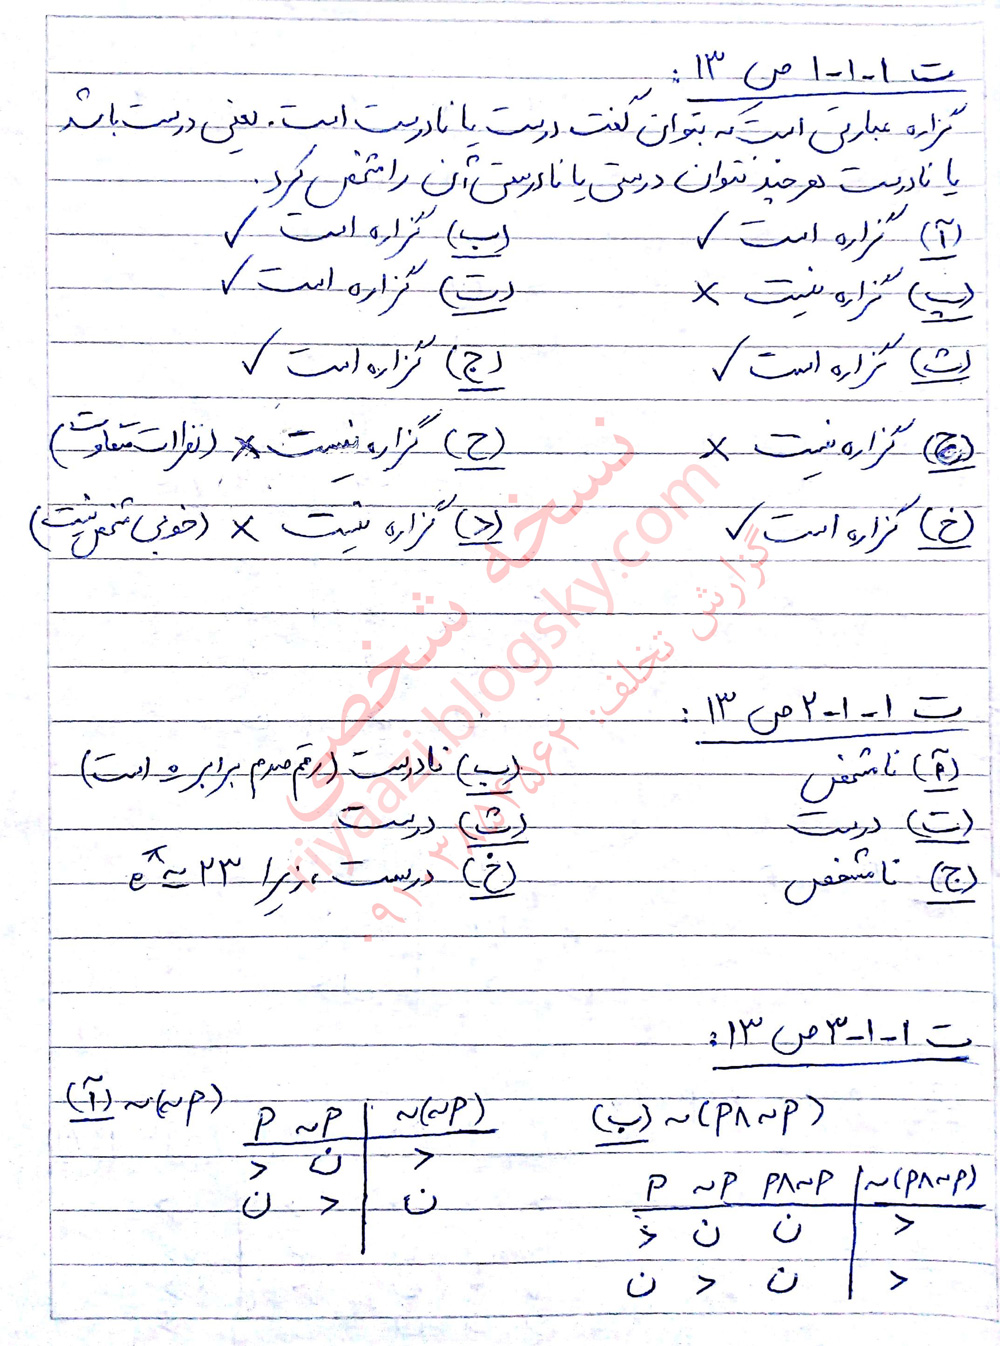 ت ۱-۱-۱ ص ۱۳ :
گزاره عبارتی است که بتوان گفت درست یا نادرست است. یعنی درست باشد
یا نادرست هرچند نتوان درستی یا نادرستی آن را مشخص کرد.
آ) گزاره است ✓ ب) گزاره است ✓
پ) گزاره نیست × ت) گزاره است ✓
ث) گزاره است ✓ ج) گزاره است ✓
چ) گزاره نیست × ح) گزاره نیست × (نظرات متفاوت)
خ) گزاره است ✓ د) گزاره نیست × (خوبی مشخص نیست)
ت ۱-۱-۲ ص ۱۳ :
آ) نامشخص ب) نادرست (رقم صدم برابر ۵ است)
ت) درست ث) درست
ج) نامشخص خ) درست، زیرا e^π ≈ ۲۳
ت ۱-۱-۳ ص ۱۳ :
آ) ~(~P)
P ~P ~(~P)
د ن د
ن د ن
ب) ~(P∧~P)
P ~P P∧~P ~(P∧~P)
د ن ن د
ن د ن د
نسخه شخصی
riyaazi.blogsky.com
گزارش تخلف: